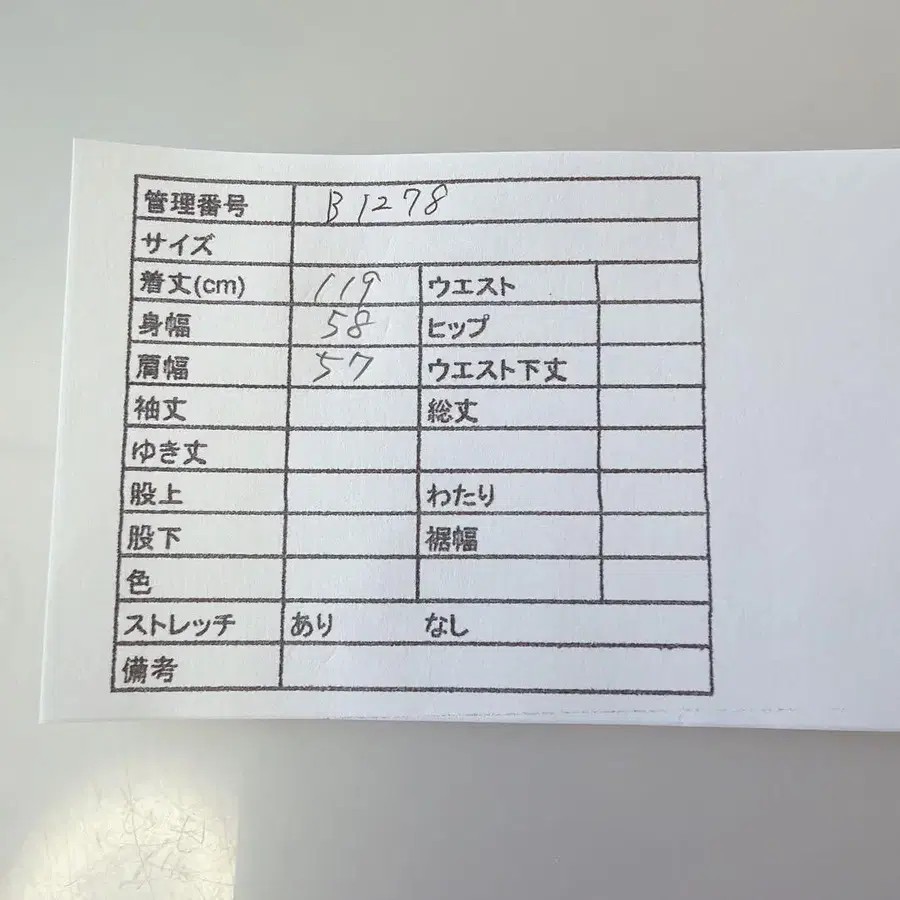 管理番号 B1278
サイズ
着丈(cm) 119 ウエスト
身幅 58 ヒップ
肩幅 57 ウエスト下丈
袖丈 総丈
ゆき丈
股上 わたり
股下 裾幅
色
ストレッチ あり なし
備考